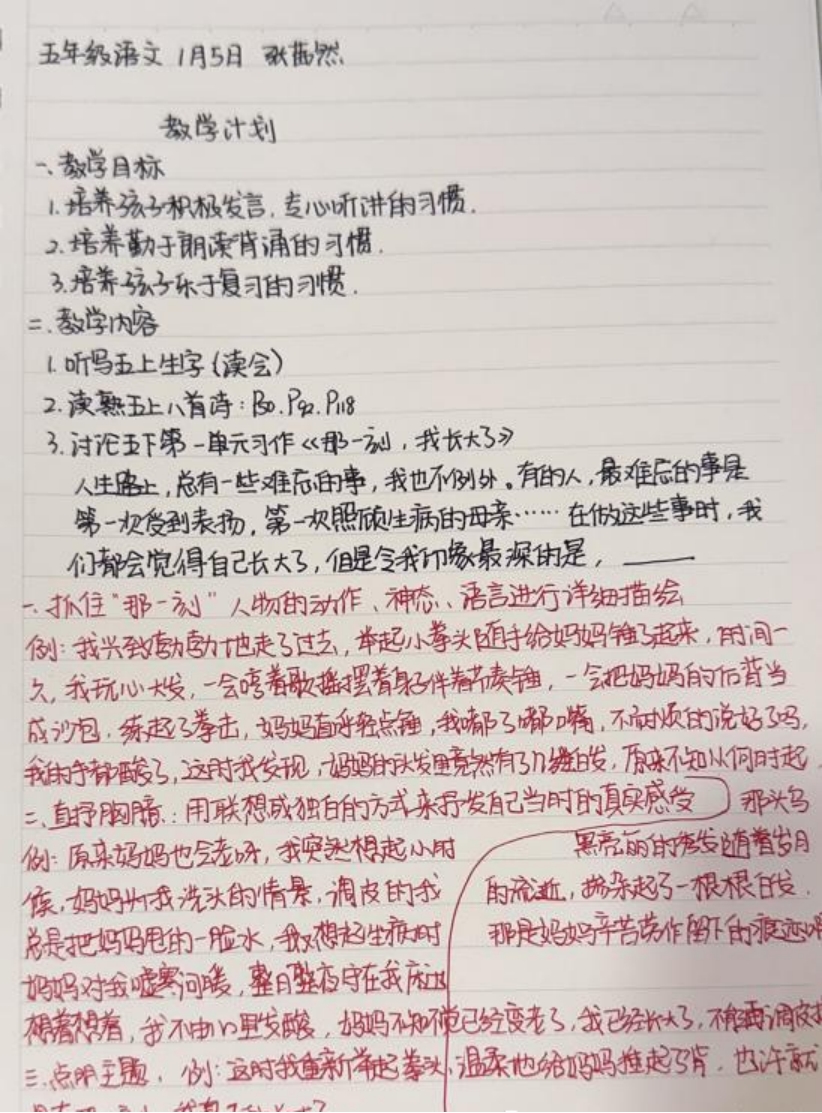 五年级语文 1月5日 张茜然
教学计划
一、教学目标
1.培养孩子积极发言,专心听讲的习惯.
2.培养勤于朗读背诵的习惯.
3.培养孩子乐于复习的习惯.
二.教学内容
1.听写五上生字(读会)
2.读熟五上八首诗:P50.P92.P118
3.讨论五下第一单元习作《那一刻,我长大了》
人生路上,总有一些难忘的事,我也不例外。有的人,最难忘的事是
第一次受到表扬,第一次照顾生病的母亲……在做这些事时,我
们都会觉得自己长大了,但是令我印象最深的是,
一.抓住"那一刻"人物的动作、神态、语言进行详细描绘
例:我兴致勃勃地走了过去,举起小拳头随手给妈妈锤了起来,时间一
久,我玩心大发,一会哼着歌摇摆着身子伴着节奏锤,一会把妈妈的后背当
成沙包,练起了拳击,妈妈直呼轻点锤,我嘟了嘟嘴,不耐烦的说好了吗,
我的手都酸了,这时我发现,妈妈的头发里竟然有了几缕白发,原来不知从何时起
二、直抒胸臆:用联想或独白的方式来抒发自己当时的真实感受 那头乌
例:原来妈妈也会老呀,我突然想起小时 黑亮丽的秀发随着岁月
候,妈妈为我洗头的情景,调皮的我 的流逝,掺杂起了一根根白发.
总是把妈妈甩的一脸水,我又想起生病时 那是妈妈辛苦劳作留下的痕迹啊
妈妈对我嘘寒问暖,整日整夜守在我床边
想着想着,我不由心里发酸,妈妈不知不觉已经变老了,我已经长大了,不能再调皮
三.点明主题. 例:这时我重新举起拳头,温柔地给妈妈捶起了背.也许就